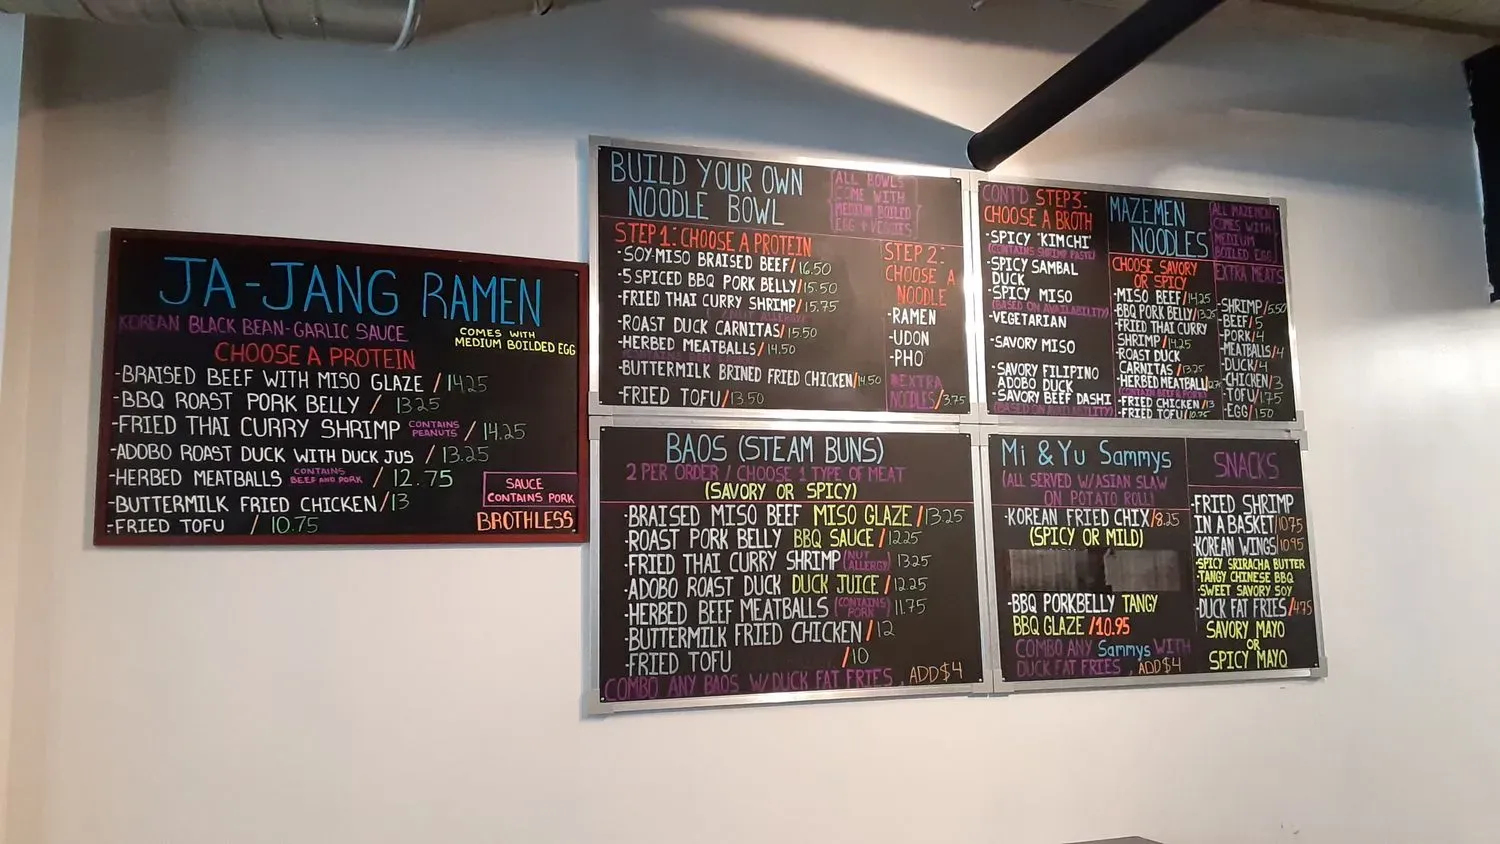 JA-JANG RAMEN
KOREAN BLACK BEAN-GARLIC SAUCE
COMES WITH
MEDIUM BOILDED EGG
CHOOSE A PROTEIN
-BRAISED BEEF WITH MISO GLAZE / 14.25
-BBQ ROAST PORK BELLY / 13.25
-FRIED THAI CURRY SHRIMP CONTAINS PEANUTS / 14.25
-ADOBO ROAST DUCK WITH DUCK JUS / 13.25
-HERBED MEATBALLS CONTAINS BEEF AND PORK / 12.75
-BUTTERMILK FRIED CHICKEN/13
-FRIED TOFU / 10.75
SAUCE
CONTAINS PORK
BROTHLESS
BUILD YOUR OWN
NOODLE BOWL
ALL BOWLS
COME WITH
MEDIUM BOILED
EGG + VEGGIES
STEP 1: CHOOSE A PROTEIN
-SOY-MISO BRAISED BEEF/16.50
-5 SPICED BBQ PORK BELLY/15.50
-FRIED THAI CURRY SHRIMP/15.75
-ROAST DUCK CARNITAS/15.50
-HERBED MEATBALLS/14.50
-BUTTERMILK BRINED FRIED CHICKEN/14.50
-FRIED TOFU/13.50
STEP 2:
CHOOSE A
NOODLE
-RAMEN
-UDON
-PHO
EXTRA
NOODLES/3.75
CONT'D STEP3:
CHOOSE A BROTH
-SPICY "KIMCHI"
(CONTAINS SHRIMP PASTE)
-SPICY SAMBAL
DUCK
-SPICY MISO
(BASED ON AVAILABILITY)
-VEGETARIAN
-SAVORY MISO
-SAVORY FILIPINO
ADOBO DUCK
-SAVORY BEEF DASHI
(BASED ON AVAILABILITY)
MAZEMEN
NOODLES
ALL MAZEMEN
COMES WITH
MEDIUM
BOILED EGG
CHOOSE SAVORY
OR SPICY
-MISO BEEF/14.25
-BBQ PORK BELLY/13.25
-FRIED THAI CURRY
SHRIMP/14.25
-ROAST DUCK
CARNITAS /13.25
-HERBED MEATBALL
-FRIED CHICKEN/13
-FRIED TOFU/10.75
EXTRA MEATS
-SHRIMP/5.50
-BEEF/5
-PORK/4
-MEATBALLS/4
-DUCK/4
-CHICKEN/3
-TOFU/1.75
-EGG/1.50
BAOS (STEAM BUNS)
2 PER ORDER / CHOOSE 1 TYPE OF MEAT
(SAVORY OR SPICY)
-BRAISED MISO BEEF MISO GLAZE/13.25
-ROAST PORK BELLY BBQ SAUCE/12.25
-FRIED THAI CURRY SHRIMP (NUT ALLERGY) 13.25
-ADOBO ROAST DUCK DUCK JUICE/12.25
-HERBED BEEF MEATBALLS (CONTAINS PORK) 11.75
-BUTTERMILK FRIED CHICKEN/12
-FRIED TOFU /10
COMBO ANY BAOS W/DUCK FAT FRIES, ADD$4
Mi & Yu Sammys
(ALL SERVED W/ASIAN SLAW
ON POTATO ROLL)
-KOREAN FRIED CHIX/8.25
(SPICY OR MILD)
-BBQ PORKBELLY TANGY
BBQ GLAZE /10.95
COMBO ANY Sammys WITH
DUCK FAT FRIES, ADD$4
SNACKS
-FRIED SHRIMP
IN A BASKET/10.75
-KOREAN WINGS/10.95
-SPICY SRIRACHA BUTTER
-TANGY CHINESE BBQ
-SWEET SAVORY SOY
-DUCK FAT FRIES/4.75
SAVORY MAYO
OR
SPICY MAYO